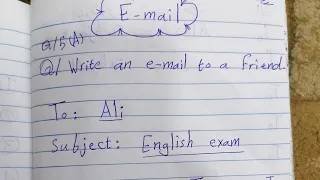 E-mail
Q/5(A)
Q/ Write an e-mail to a friend.
To: Ali
Subject: English exam